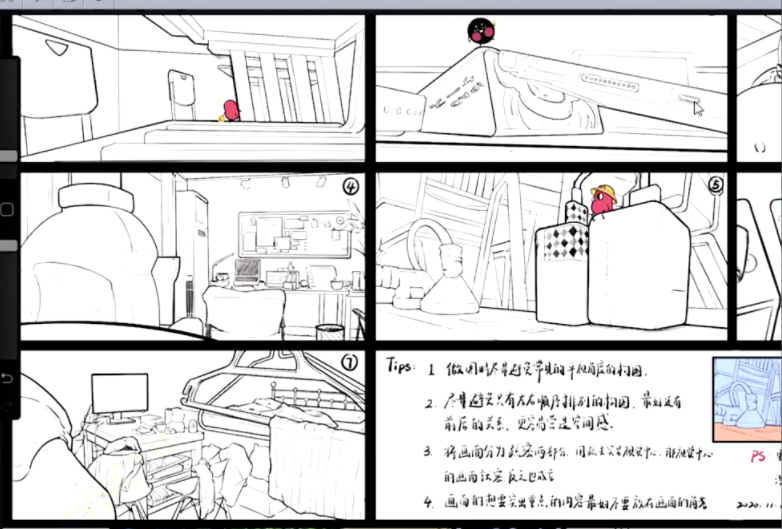 ④
⑤
⑦
Tips: 1. 做图时尽量避免常见的平视角度的构图.
2. 尽量避免只有左右顺序排列的构图, 最好有
前后的关系, 更容易营造空间感.
3. 将画面分为疏密两部分, 视觉中心
的画面 反之也成立
4. 画面的想要突出重点的内容最好不要放在画面的角落
PS
2020.11